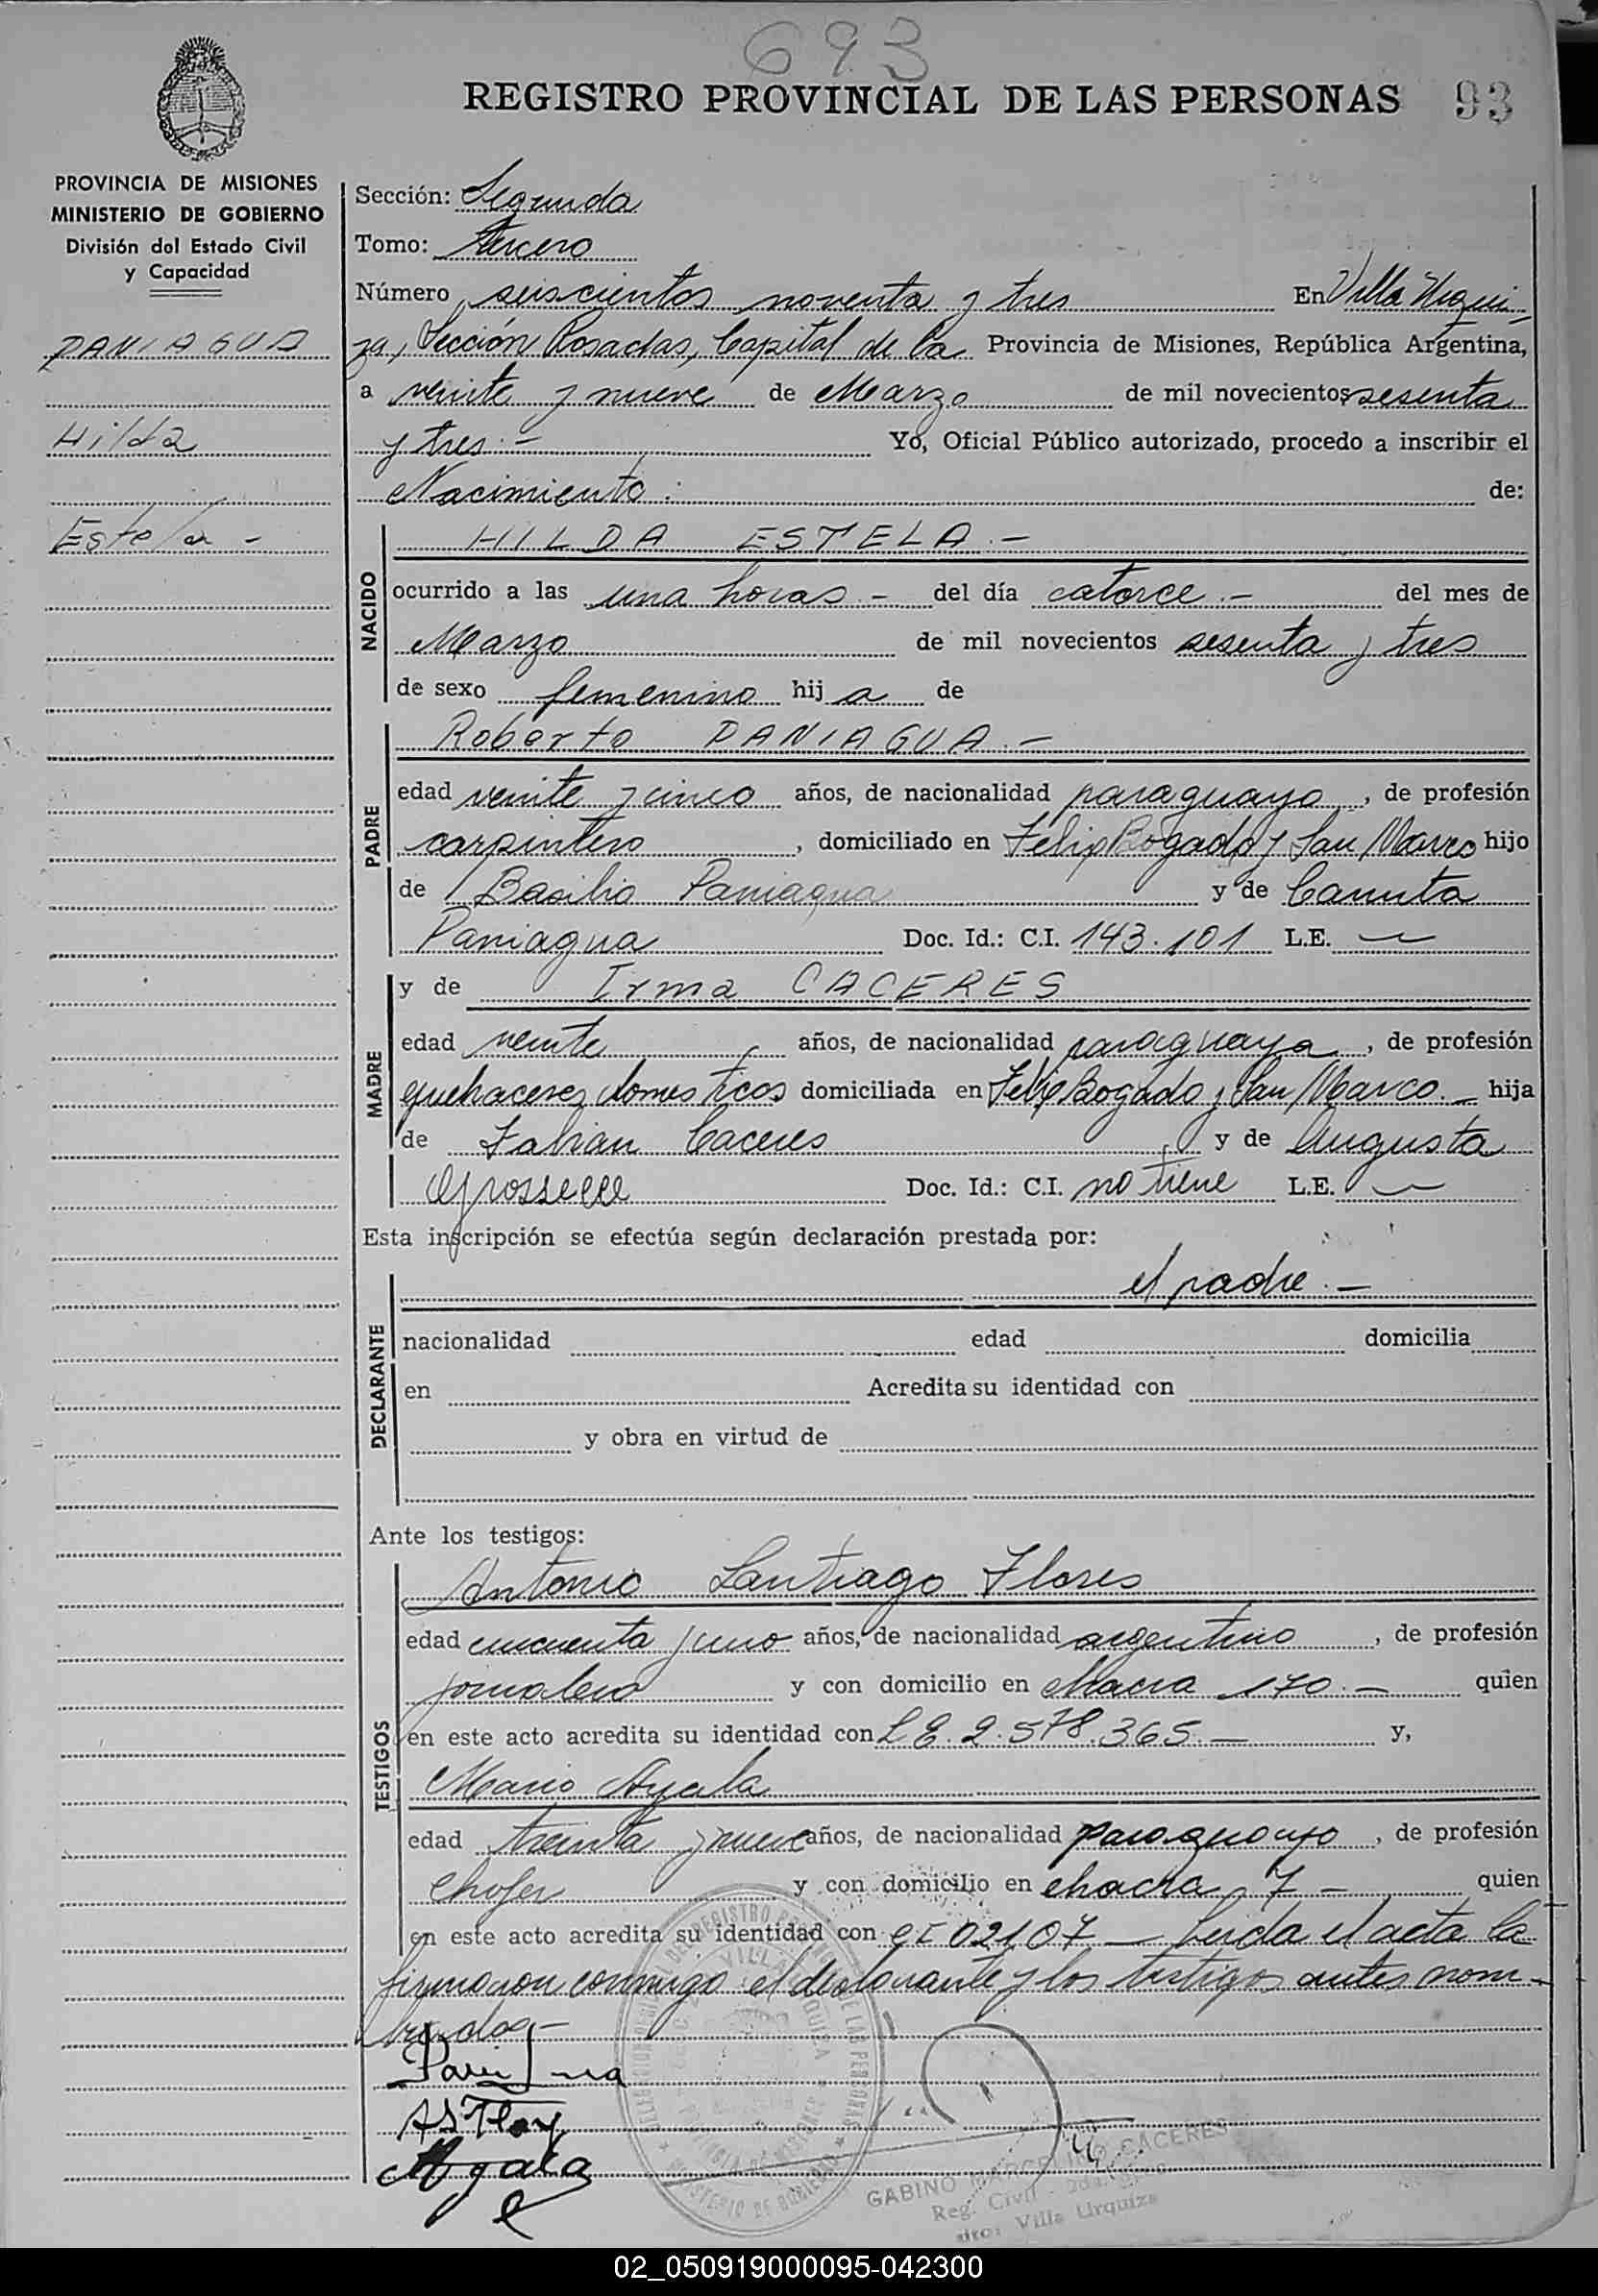 693
REGISTRO PROVINCIAL DE LAS PERSONAS 93
PROVINCIA DE MISIONES
MINISTERIO DE GOBIERNO
División del Estado Civil
y Capacidad
PANIAGUA
Hilda
Estela -
Sección: Segunda
Tomo: tercero
Número seiscientos noventa y tres En Villa Urqui-
za, Sección Posadas, Capital de la Provincia de Misiones, República Argentina,
a veinte y nueve de Marzo de mil novecientos sesenta
y tres.- Yo, Oficial Público autorizado, procedo a inscribir el
Nacimiento: de:
NACIDO
HILDA ESTELA.-
ocurrido a las una horas.- del día catorce.- del mes de
Marzo de mil novecientos sesenta y tres
de sexo femenino hij a de
PADRE
Roberto PANIAGUA.-
edad veinte y cinco años, de nacionalidad paraguayo, de profesión
carpintero, domiciliado en Felip Bogado y San Marco hijo
de Basilio Paniagua y de Canuta
Paniagua Doc. Id.: C.I. 143.101 L.E. —
MADRE
y de Irma CACERES
edad veinte años, de nacionalidad paraguaya, de profesión
quehaceres domesticos domiciliada en Felip Bogado y San Marco.- hija
de Fabian Caceres y de Augusta
Doc. Id.: C.I. no tiene L.E. —
Esta inscripción se efectúa según declaración prestada por:
DECLARANTE
el padre.-
nacionalidad edad domicilia
en Acredita su identidad con
y obra en virtud de
Ante los testigos:
TESTIGOS
Antonio Santiago Flores
edad cincuenta y uno años, de nacionalidad argentino, de profesión
jornalero y con domicilio en chacra 170.- quien
en este acto acredita su identidad con L E. 2.578.365.- y,
Mario Ayala
edad treinta y nueve años, de nacionalidad paraguayo, de profesión
Chofer y con domicilio en chacra 7 - quien
en este acto acredita su identidad con 02107 — Leida el acta la
firmaron conmigo el declarante y los testigos antes nom-
brados-
A S Flores
M Ayala
GABINO MARCELINO CACERES
Reg. Civil
Villa Urquiza
02_050919000095-042300